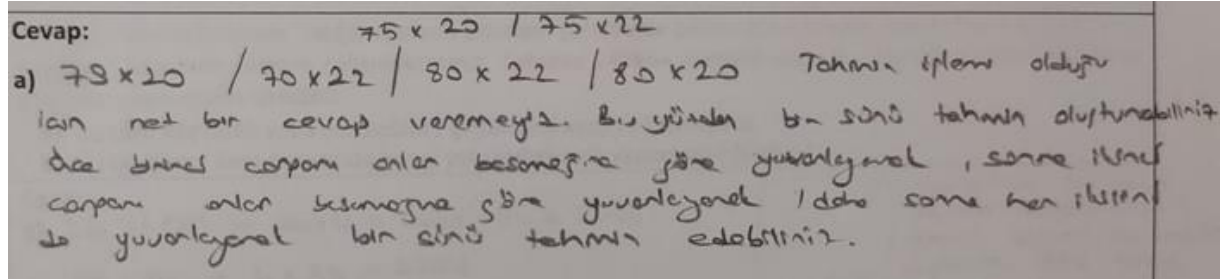 Cevap: 75 x 20 / 75 x 22
a) 79 x 20 / 70 x 22 / 80 x 22 / 80 x 20 Tahmin işlemi olduğu
için net bir cevap veremeyiz. Bu yüzden bir sürü tahmin oluşturabiliriz
önce birinci çarpanı onlar basamağına göre yuvarlayarak, sonra ikinci
çarpanı onlar basamağına göre yuvarlayarak / daha sonra her ikisini
de yuvarlayarak bir sürü tahmin edebiliriz.